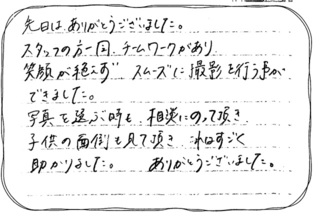 先日は ありがとうございました。
スタッフの方一同、チームワークがあり
笑顔が絶えず スムーズに撮影を行う事が
できました。
写真を選ぶ時も、相談にのって頂き
子供の面倒も見て頂き すごく
助かりました。 ありがとうございました。